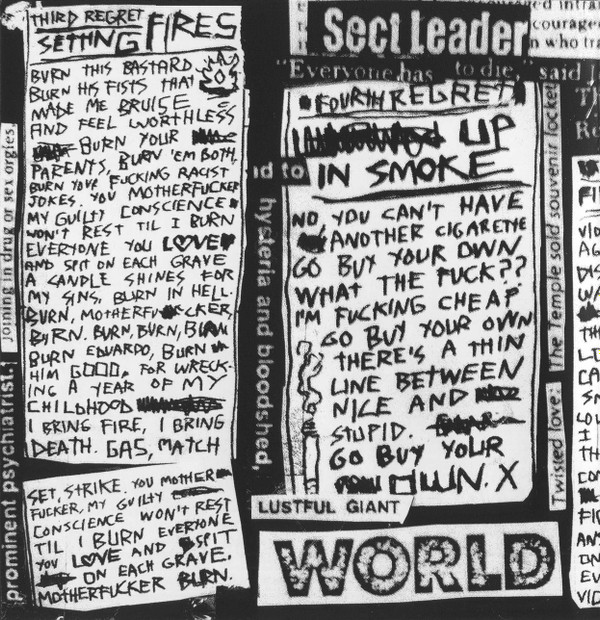 THIRD REGRET
SETTING FIRES
BURN THIS BASTARD
BURN HIS FISTS THAT
MADE ME BRUISE
AND FEEL WORTHLESS
BURN YOUR
PARENTS, BURN 'EM BOTH.
BURN YOUR FUCKING RACIST
JOKES. YOU MOTHERFUCKER
MY GUILTY CONSCIENCE
WON'T REST TIL I BURN
EVERYONE YOU LOVE
AND SPIT ON EACH GRAVE
A CANDLE SHINES FOR
MY SINS, BURN IN HELL.
BURN, MOTHERFUCKER,
BURN. BURN, BURN,
BURN EDUARDO, BURN
HIM GOOD, FOR WRECK-
ING A YEAR OF MY
CHILDHOOD
I BRING FIRE, I BRING
DEATH. GAS, MATCH
SET, STRIKE. YOU MOTHER
FUCKER, MY GUILTY
CONSCIENCE WON'T REST
TIL I BURN EVERYONE
YOU LOVE AND SPIT
ON EACH GRAVE.
MOTHERFUCKER BURN.
Joining in drug or sex orgies
prominent psychiatrist.
Sect Leader
"Everyone has to die," said
FOURTH REGRET
UP
IN SMOKE
NO YOU CAN'T HAVE
ANOTHER CIGARETTE
GO BUY YOUR OWN
WHAT THE FUCK??
I'M FUCKING CHEAP
GO BUY YOUR OWN
THERE'S A THIN
LINE BETWEEN
NICE AND
STUPID.
GO BUY YOUR
OWN. X
id to
hysteria and bloodshed,
LUSTFUL GIANT
WORLD
The Temple sold souvenir locket
Twisted love: